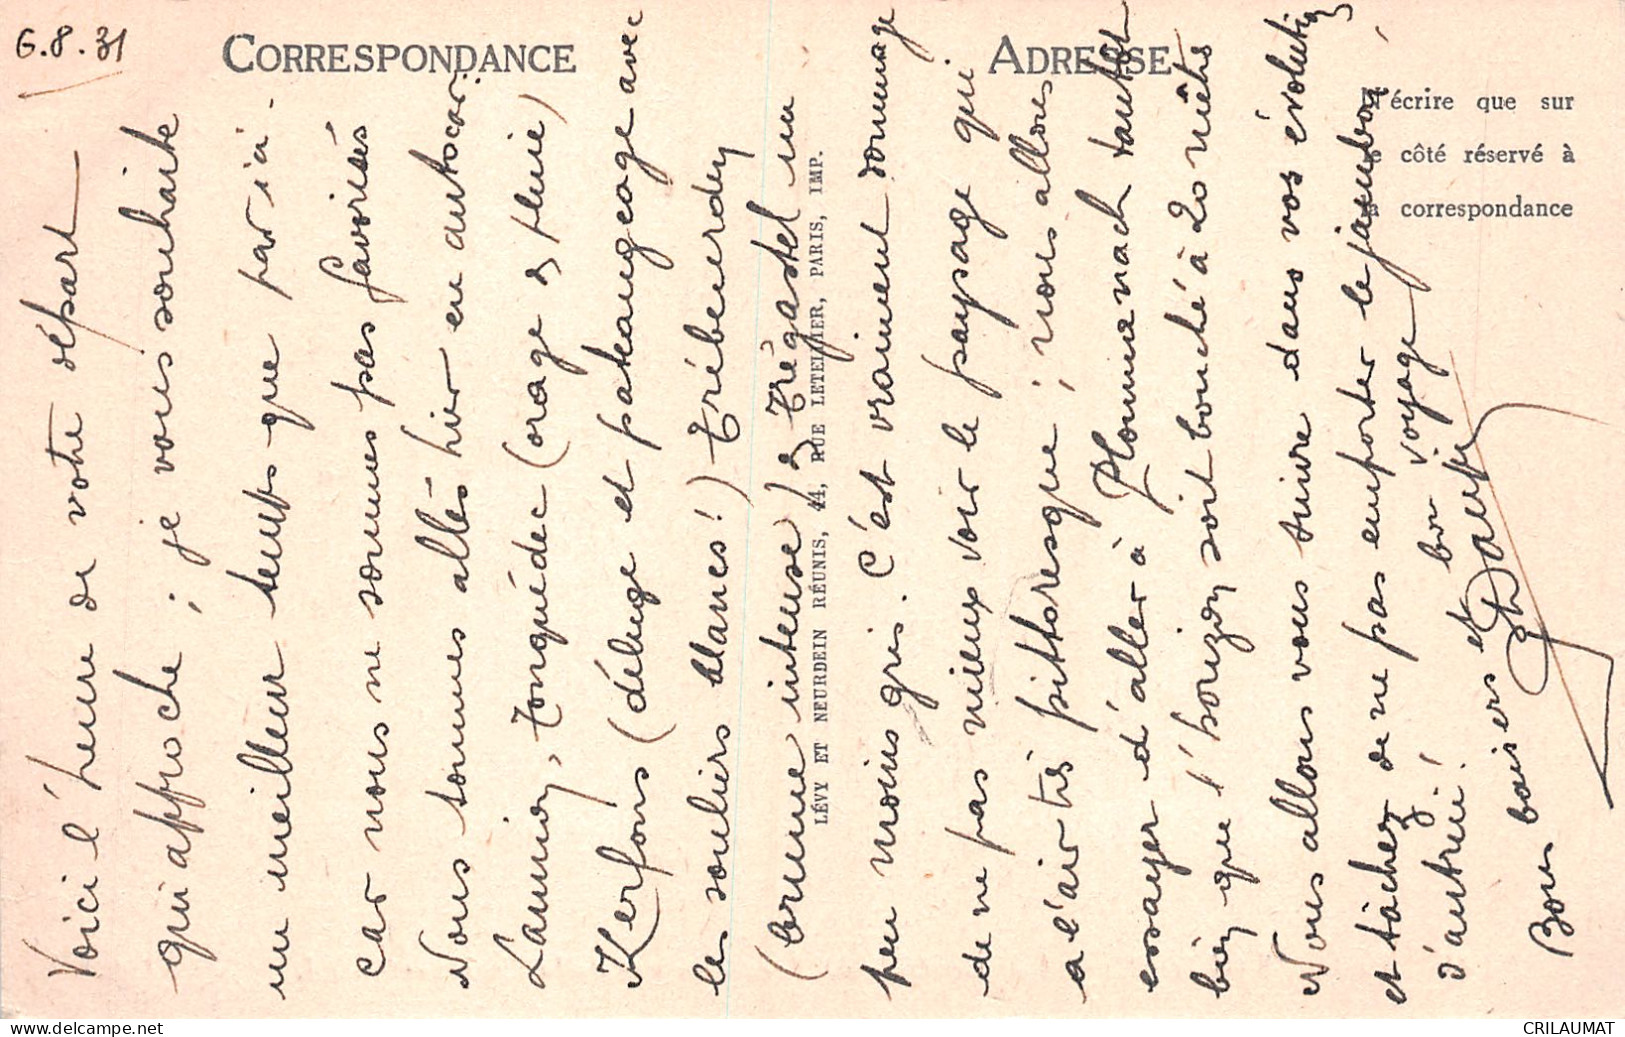 6.8.31
CORRESPONDANCE
ADRESSE
N'écrire que sur
le côté réservé à
la correspondance
LÉVY ET NEURDEIN RÉUNIS, 44, RUE LETELLIER, PARIS, IMP.
Voici l'heure de votre départ
qui approche ; je vous souhaite
un meilleur temps que par ici.
car nous ne sommes pas favorisés
Nous sommes allés hier en autocar :
Lannion, Tonquédec (orage & pluie)
Kerfons (déluge et pataugeage avec
les souliers blancs !) Trébeurden
(brume intense) & Trégastel un
peu moins gris. C'est vraiment dommage
de ne pas mieux voir le paysage qui
a l'air très pittoresque ; nous allons
essayer d'aller à Ploumanach tantôt
bien que l'horizon soit bouché à 20 mètres
Nous allons vous suivre dans vos évolutions
et tâchez de ne pas emporter le jambon
d'autrui !
Bons baisers et bon voyage